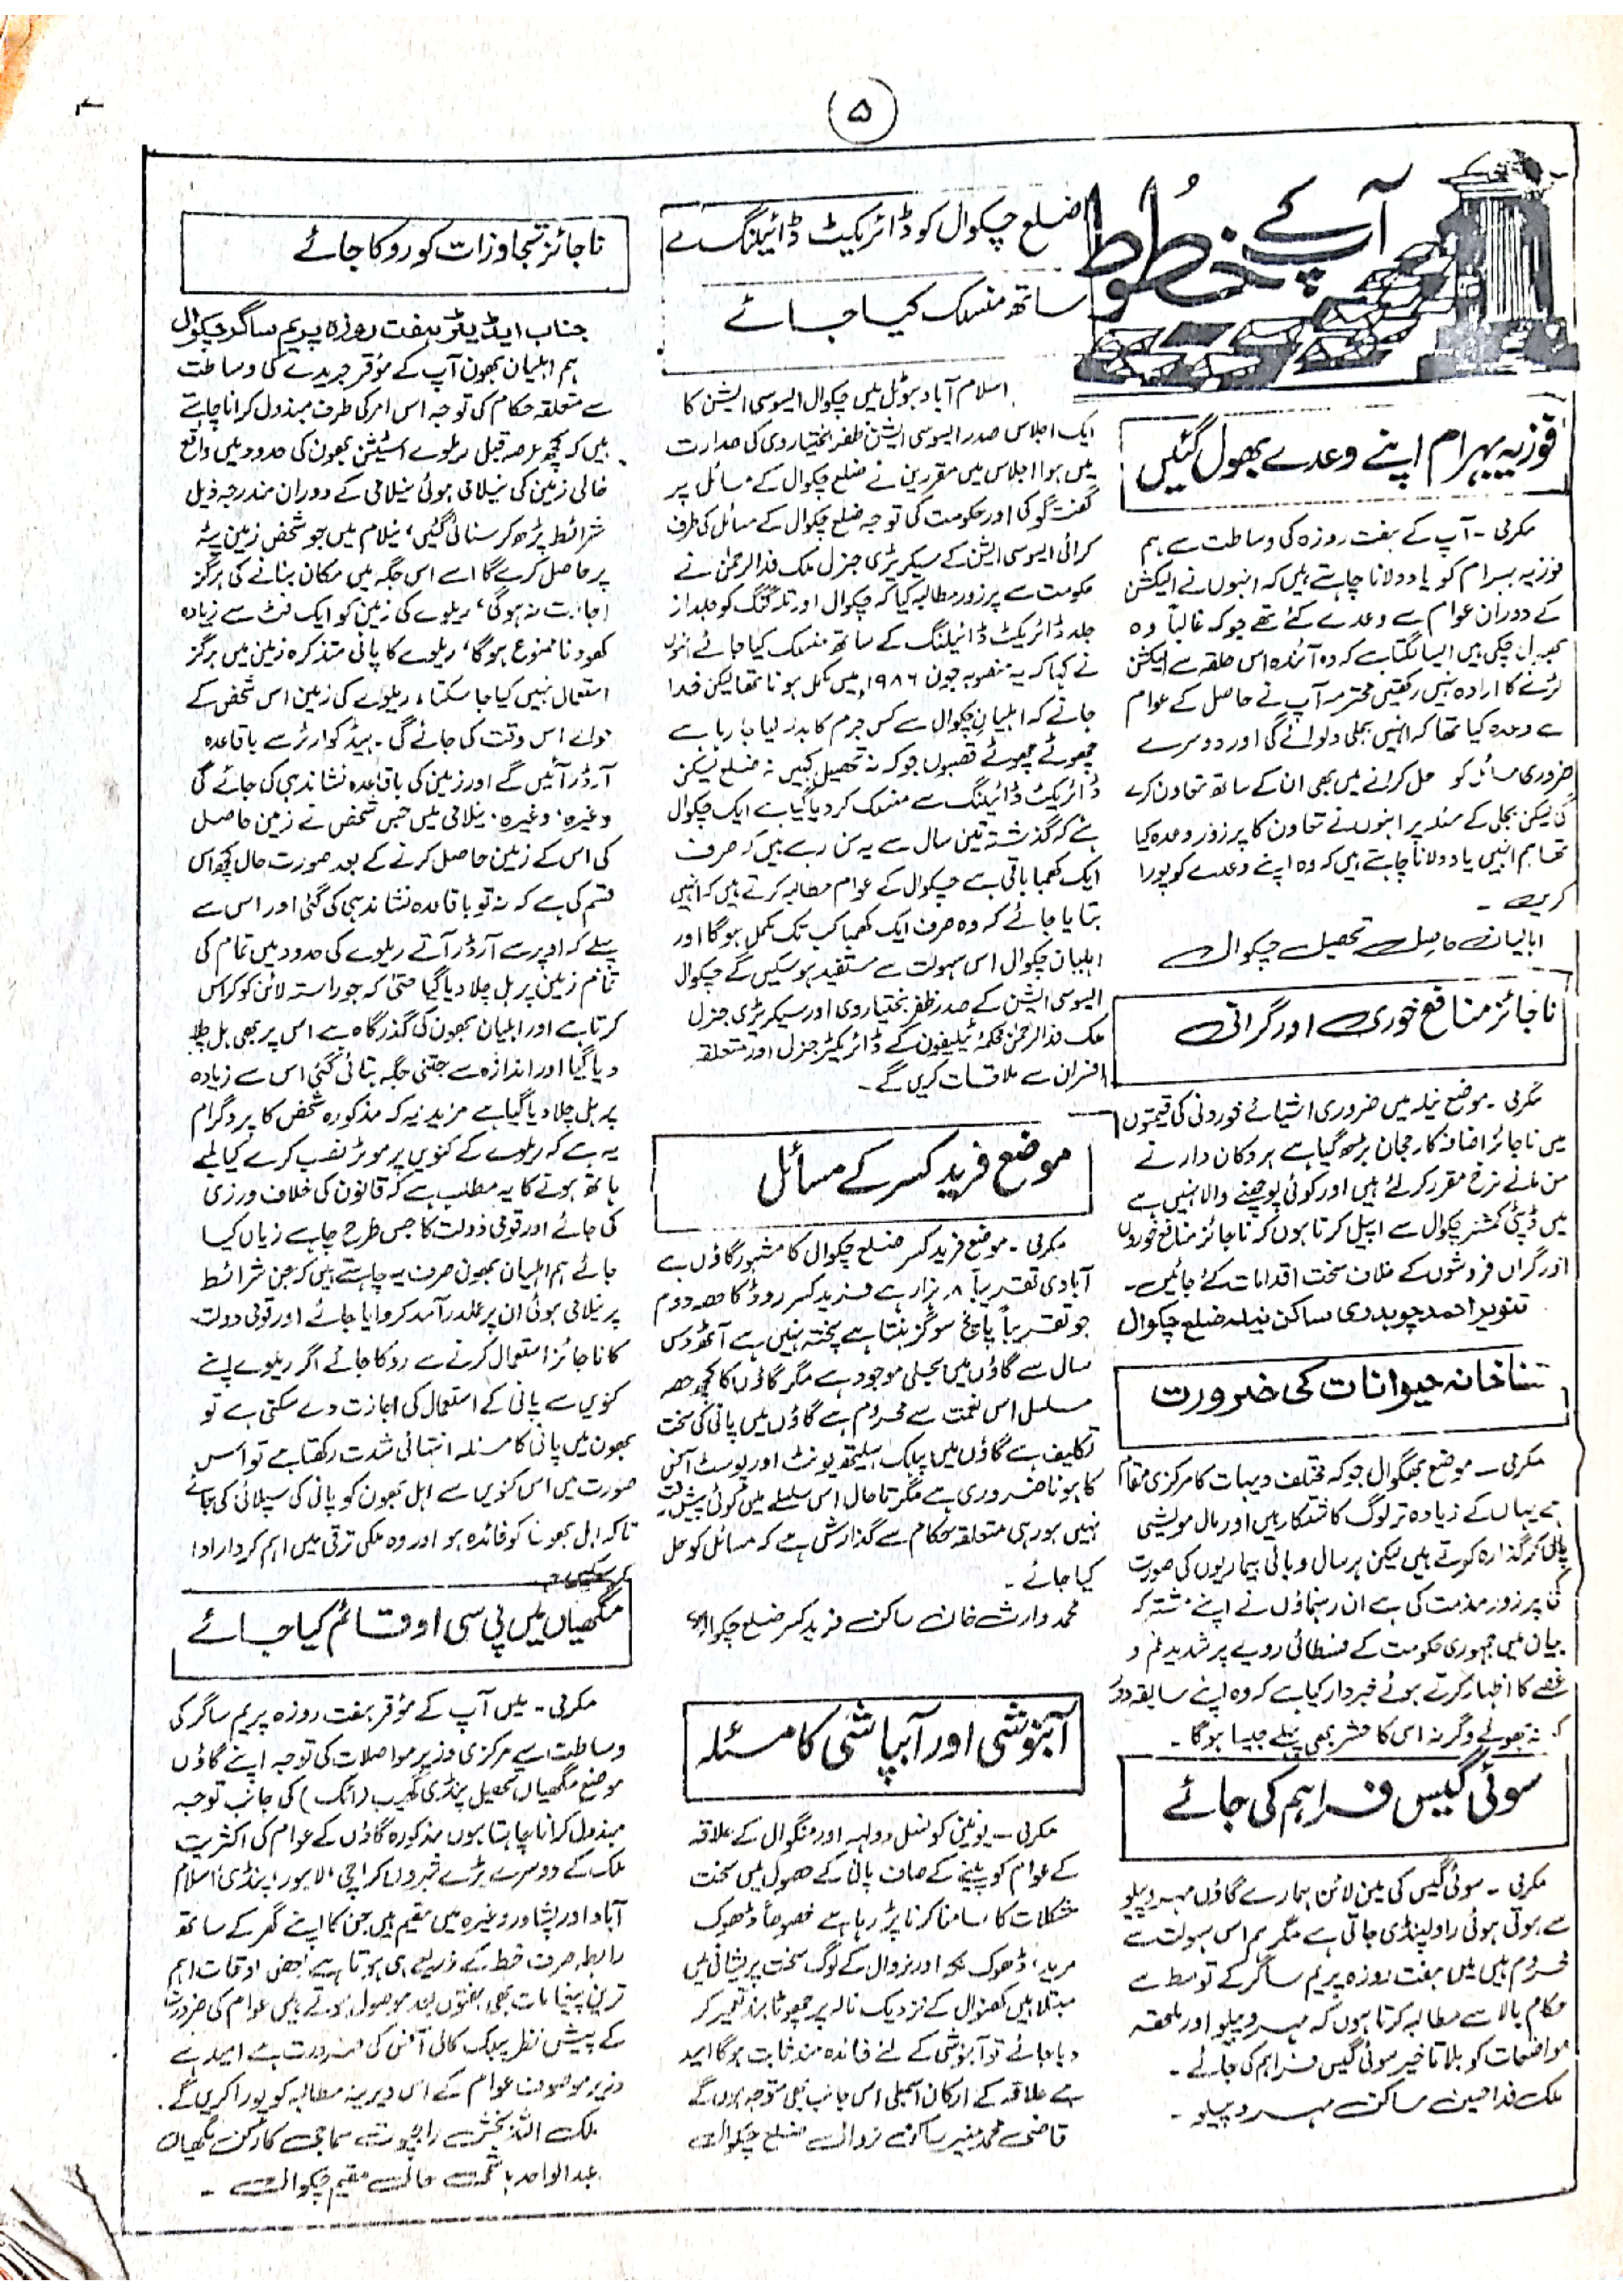 ۵
آپ کے خطوط
فوزیہ بہرام اپنے وعدے بھول گئیں
مکرمی - آپ کے ہفت روزہ کی وساطت سے ہم
فوزیہ بہرام کو یاد دلانا چاہتے ہیں کہ انہوں نے الیکشن
کے دوران عوام سے وعدے کئے تھے جو کہ غالباً وہ
بھول چکی ہیں ایسا لگتا ہے کہ وہ آئندہ اس حلقہ سے الیکشن
لڑنے کا ارادہ نہیں رکھتیں محترمہ آپ نے حاصل کے عوام
سے وعدہ کیا تھا کہ انہیں بجلی دلوائے گی اور دوسرے
ضروری مسائل کو حل کرانے میں بھی ان کے ساتھ تعاون کرے
گی لیکن بجلی کے مسئلہ پر انہوں نے تعاون کا پرزور وعدہ کیا
تھا ہم انہیں یاد دلانا چاہتے ہیں کہ وہ اپنے وعدے کو پورا
کریں -
اہالیان حاصل تحصیل چکوال
ناجائز منافع خوری اور گرانی
مکرمی - موضع نیلہ میں ضروری اشیائے خوردنی کی قیمتوں
میں ناجائز اضافہ کا رجحان بڑھ گیا ہے ہر دکان دار نے
من مانے نرخ مقرر کر لئے ہیں اور کوئی پوچھنے والا نہیں ہے
میں ڈپٹی کمشنر چکوال سے اپیل کرتا ہوں کہ ناجائز منافع خوروں
اور گراں فروشوں کے خلاف سخت اقدامات کئے جائیں -
تنویر احمد چوہدری ساکن نیلہ ضلع چکوال
شفاخانہ حیوانات کی ضرورت
مکرمی - موضع بھگوال جو کہ مختلف دیہات کا مرکزی مقام
ہے یہاں کے زیادہ تر لوگ کاشتکار ہیں اور مال مویشی
پال کر گذارہ کرتے ہیں لیکن ہر سال وبائی بیماریوں کی صورت
کی پرزور مذمت کی ہے ان رہنماؤں نے اپنے مشترکہ
بیان میں جمہوری حکومت کے فسطائی رویے پر شدید غم و
غصے کا اظہار کرتے ہوئے خبردار کیا ہے کہ وہ اپنے سابقہ دور
کو نہ بھولے وگرنہ اس کا حشر بھی پہلے جیسا ہوگا -
سوئی گیس فراہم کی جائے
مکرمی - سوئی گیس کی مین لائن ہمارے گاؤں مہرو پیلو
سے ہوتی ہوئی راولپنڈی جاتی ہے مگر ہم اس سہولت سے
محروم ہیں میں ہفت روزہ پریم ساگر کے توسط سے
حکام بالا سے مطالبہ کرتا ہوں کہ مہرو پیلو اور ملحقہ
مواضعات کو بلا تاخیر سوئی گیس فراہم کی جائے -
ملک فدا حسین ساکن مہرو پیلو -
ضلع چکوال کو ڈائریکٹ ڈائیلنگ کے
ساتھ منسلک کیا جائے
اسلام آباد ہوٹل میں چکوال ایسوسی ایشن کا
ایک اجلاس صدر ایسوسی ایشن ظفر بختیاروی کی صدارت
میں ہوا اجلاس میں مقررین نے ضلع چکوال کے مسائل پر
گفتگو کی اور حکومت کی توجہ ضلع چکوال کے مسائل کی طرف
کرائی ایسوسی ایشن کے سیکریٹری جنرل ملک فدا الرحمٰن نے
حکومت سے پرزور مطالبہ کیا کہ چکوال اور تلہ گنگ کو جلد از
جلد ڈائریکٹ ڈائیلنگ کے ساتھ منسلک کیا جائے انہوں
نے کہا کہ یہ منصوبہ جون ۱۹۸۶ء میں مکمل ہونا تھا لیکن خدا
جانے کہ اہلیان چکوال سے کس جرم کا بدلہ لیا جا رہا ہے
چھوٹے چھوٹے قصبوں جو کہ نہ تحصیل ہیں نہ ضلع لیکن
ڈائریکٹ ڈائیلنگ سے منسلک کر دیا گیا ہے ایک چکوال
ہے کہ گذشتہ تین سال سے یہ سن رہے ہیں کہ صرف
ایک کھمبا باقی ہے چکوال کے عوام مطالبہ کرتے ہیں کہ انہیں
بتایا جائے کہ وہ صرف ایک کھمبا کب تک مکمل ہوگا اور
اہلیان چکوال اس سہولت سے مستفید ہو سکیں گے چکوال
ایسوسی ایشن کے صدر ظفر بختیاروی اور سیکریٹری جنرل
ملک فدا الرحمٰن محکمہ ٹیلیفون کے ڈائریکٹر جنرل اور متعلقہ
افسران سے ملاقات کریں گے -
موضع فرید کسر کے مسائل
مکرمی - موضع فرید کسر ضلع چکوال کا مشہور گاؤں ہے
آبادی تقریباً ۸ ہزار ہے فرید کسر روڈ کا حصہ دوم
جو تقریباً پانچ سو گز بنتا ہے پختہ نہیں ہے آٹھ دس
سال سے گاؤں میں بجلی موجود ہے مگر گاؤں کا کچھ حصہ
مسلسل اس نعمت سے محروم ہے گاؤں میں پانی کی سخت
تکلیف ہے گاؤں میں پبلک ہیلتھ یونٹ اور پوسٹ آفس
کا ہونا ضروری ہے مگر تا حال اس سلسلے میں کوئی پیش رفت
نہیں ہو رہی متعلقہ حکام سے گذارش ہے کہ مسائل کو حل
کیا جائے -
محمد وارث خان ساکن فرید کسر ضلع چکوال
آبنوشی اور آبپاشی کا مسئلہ
مکرمی - یونین کونسل دولہہ اور منگوال کے علاقہ
کے عوام کو پینے کے صاف پانی کے حصول میں سخت
مشکلات کا سامنا کرنا پڑ رہا ہے خصوصاً ڈھوک
مرید، ڈھوک اور نروال کے لوگ سخت پریشانی میں
مبتلا ہیں کھنوال کے نزدیک نالہ پر چھوٹا بند تعمیر کر
دیا جائے تو آبنوشی کے لئے فائدہ مند ثابت ہوگا امید
ہے علاقہ کے ارکان اسمبلی اس جانب بھی متوجہ ہوں گے
قاضی محمد منیر ساکن نروال ضلع چکوال
ناجائز تجاوزات کو روکا جائے
جناب ایڈیٹر ہفت روزہ پریم ساگر چکوال
ہم اہلیان بھون آپ کے مؤقر جریدے کی وساطت
سے متعلقہ حکام کی توجہ اس امر کی طرف مبذول کرانا چاہتے
ہیں کہ کچھ عرصہ قبل ریلوے اسٹیشن بھون کی حدود میں واقع
خالی زمین کی نیلامی ہوئی نیلامی کے دوران مندرجہ ذیل
شرائط پڑھ کر سنائی گئیں، نیلام میں جو شخص زمین پٹہ
پر حاصل کرے گا اسے اس جگہ میں مکان بنانے کی ہرگز
اجازت نہ ہوگی، ریلوے کی زمین کو ایک فٹ سے زیادہ
کھودنا ممنوع ہوگا، ریلوے کا پانی متذکرہ زمین میں ہرگز
استعمال نہیں کیا جا سکتا، ریلوے کی زمین اس شخص کے
حوالے اس وقت کی جائے گی - ہیڈ کوارٹر سے باقاعدہ
آرڈر آئیں گے اور زمین کی باقاعدہ نشاندہی کی جائے گی
وغیرہ، وغیرہ، نیلامی میں جس شخص نے زمین حاصل
کی اس کے زمین حاصل کرنے کے بعد صورت حال کچھ اس
قسم کی ہے کہ نہ تو باقاعدہ نشاندہی کی گئی اور اس سے
پہلے کہ اوپر سے آرڈر آتے ریلوے کی حدود میں تمام کی
تمام زمین پر ہل چلا دیا گیا حتیٰ کہ جو راستہ لائن کو کراس
کرتا ہے اور اہلیان بھون کی گذرگاہ ہے اس پر بھی ہل چلا
دیا گیا اور اندازہ سے جتنی جگہ بتائی گئی اس سے زیادہ
پر ہل چلا دیا گیا ہے مزید یہ کہ مذکورہ شخص کا پروگرام
یہ ہے کہ ریلوے کے کنویں پر موٹر نصب کرے کیا لمبے
ہاتھ ہونے کا یہ مطلب ہے کہ قانون کی خلاف ورزی
کی جائے اور قومی دولت کا جس طرح چاہے زیاں کیا
جائے ہم اہلیان بھون صرف یہ چاہتے ہیں کہ جن شرائط
پر نیلامی ہوئی ان پر عملدرآمد کروایا جائے اور قومی دولت
کا ناجائز استعمال کرنے سے روکا جائے اگر ریلوے اپنے
کنویں سے پانی کے استعمال کی اجازت دے سکتی ہے تو
بھون میں پانی کا مسئلہ انتہائی شدت رکھتا ہے تو اس
صورت میں اس کنویں سے اہل بھون کو پانی کی سپلائی کی جائے
تاکہ اہل بھون کو فائدہ ہو اور وہ ملکی ترقی میں اہم کردار ادا
کر سکیں -
مگھیاں میں پی سی او قائم کیا جائے
مکرمی - میں آپ کے مؤقر ہفت روزہ پریم ساگر کی
وساطت سے مرکزی وزیر مواصلات کی توجہ اپنے گاؤں
موضع مگھیاں تحصیل پنڈی گھیب (اٹک) کی جانب توجہ
مبذول کرانا چاہتا ہوں مذکورہ گاؤں کے عوام کی اکثریت
ملک کے دوسرے بڑے شہروں کراچی، لاہور، پنڈی، اسلام
آباد اور پشاور وغیرہ میں مقیم ہیں جن کا اپنے گھر کے ساتھ
رابطہ صرف خط کے ذریعے ہی ہوتا ہے بعض اوقات اہم
ترین پیغامات بھی ہفتوں بعد موصول ہوتے ہیں عوام کی ضرورت
کے پیش نظر پبلک کال آفس کی ضرورت ہے امید ہے
وزیر موصوف عوام کے اس دیرینہ مطالبہ کو پورا کریں گے -
ملک اللہ بخش راجپوت سماجی کارکن مگھیاں
عبدالواحد ہاشمی حال مقیم چکوال -